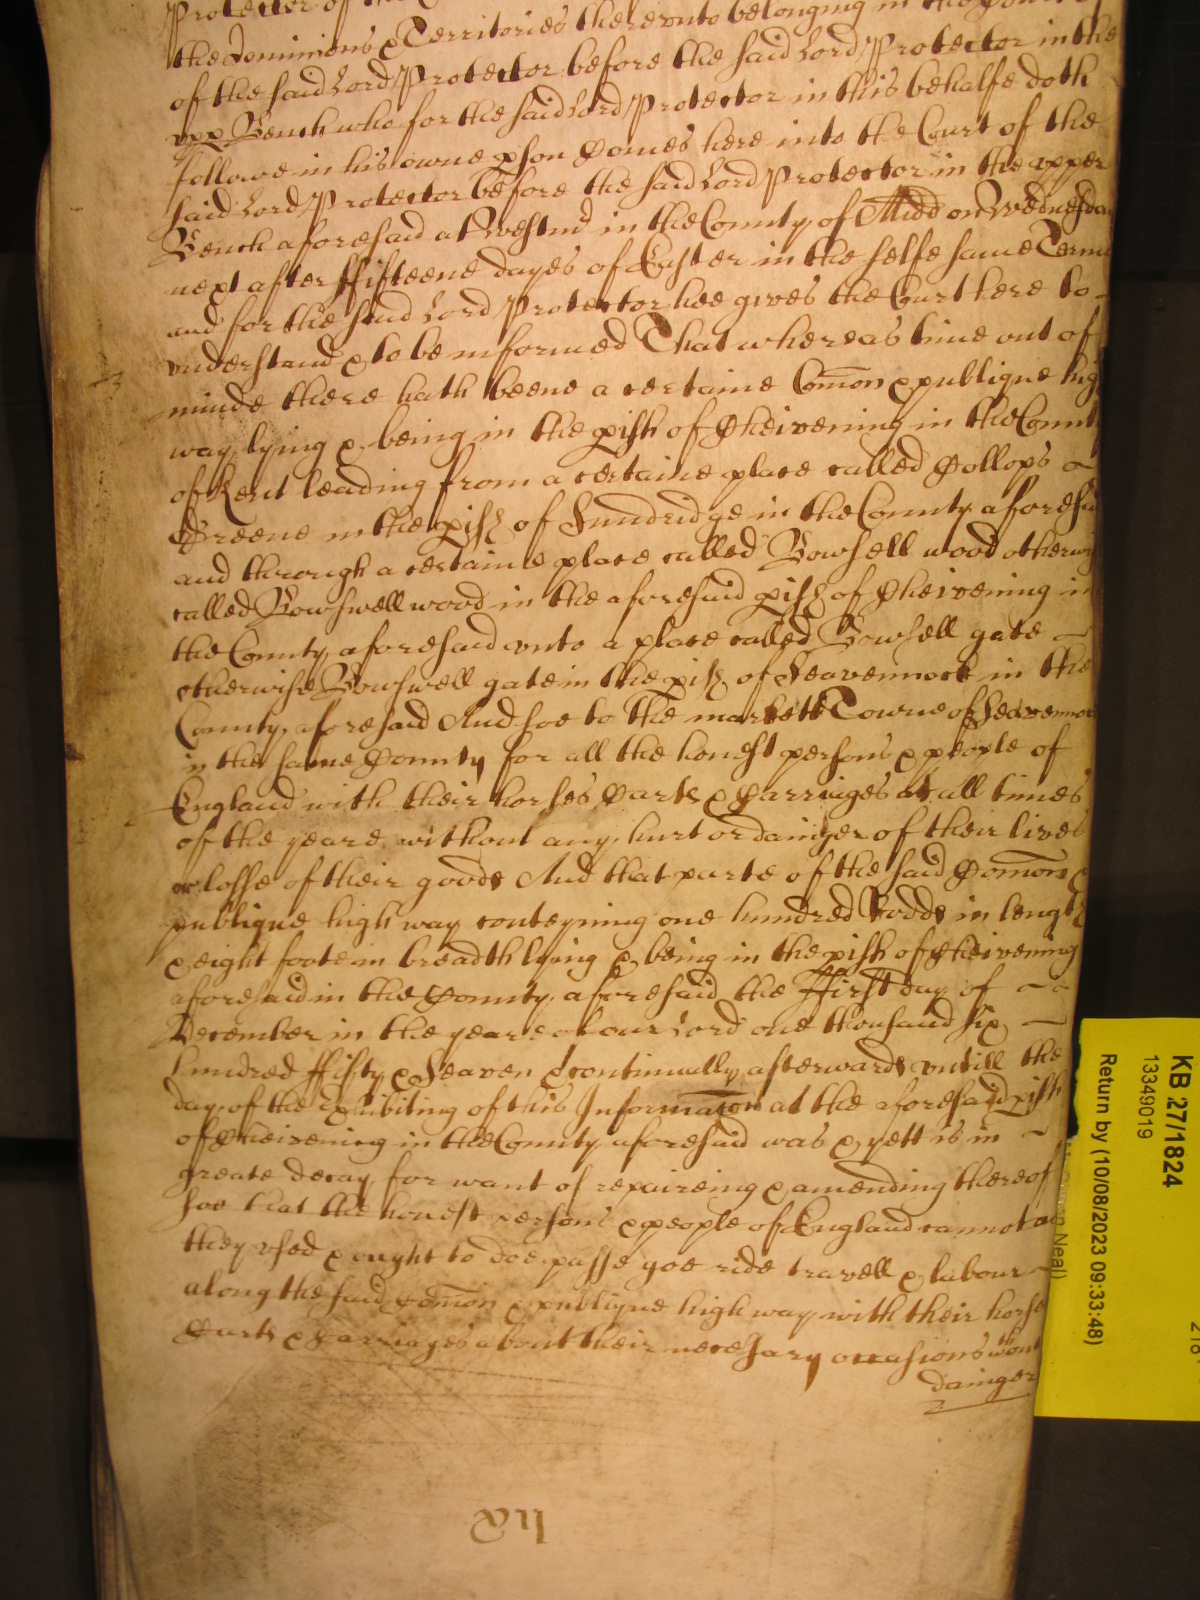 Protector of the
the Dominions & Territories thereunto belonging in the
of the said Lord Protector before the said Lord Protector in the
upp Bench who for the said Lord Protector in this behalfe doth
followe in his owne pson Comes here into the Court of the
said Lord Protector before the said Lord Protector in the upper
Bench aforesaid at Westmr in the County of Midd on Wednesday
next after ffifteene dayes of Easter in the selfe same Terme
and for the said Lord Protector hee gives the Court here to
understand & to be informed That whereas time out of
minde there hath beene a certaine Com̄on & publique hig
way lying & being in the pish of Cheivening in the Count
of Kent leading from a certaine place called Gollops
Greene in the pish of Sundridge in the County aforesa
and through a certaine place called Bowsell wood otherwi
called Bowswell wood in the aforesaid pish of Cheivening in
the County aforesaid unto a place called Bowsell gate
otherwise Bowswell gate in the pish of Seavennock in the
County aforesaid And soe to the markett Towne of Seavennoc
in the same County for all the honest persons & people of
England with their horses Carts & Carriages at all times
of the yeare without any hurt or dainger of their lives
or losse of their goods And that parte of the said Com̄on &
publique high way conteyning one hundred Rodds in length
& eight foote in breadth lying & being in the pish of Cheivening
aforesaid in the County aforesaid the ffirst day of
December in the yeare of our Lord one thousand six
hundred ffifty & Seaven & continually afterwards untill the
day of the exhibiting of this Informacon at the aforesaid pish
of Cheivening in the County aforesaid was & yett is in
greate decay for want of repaireing & amending thereof
soe that the honest persons & people of England cannot as
they used & ought to doe passe goe ride travell & labour
along the said Com̄on & publique high way with their horse
Carts & Carriages about their necessary occasions wthout
dainger
KB 27/1824
13349019
Return by (10/08/2023 09:33:48)
Neal)